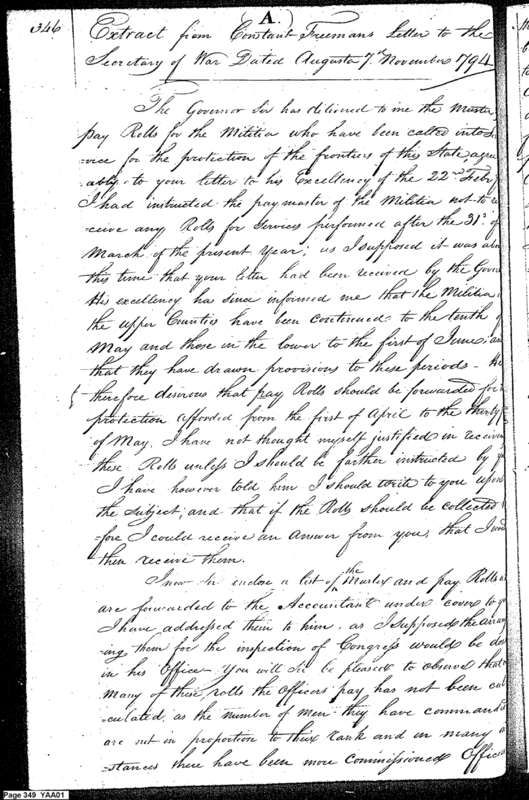 346
A.
Extract from Constant Freemans Letter to the
Secretary of War Dated Augusta 7th November 1794
The Governor Sir has delivered to me the Muster
pay Rolls for the Militia who have been called into
-vice for the protection of the frontiers of this State, agre
-ably to your letter to his Excellency of the 22nd Feby
I had instructed the paymaster of the Militia not to re
-ceive any Rolls for Services performed after the 31st
March of the present Year; as I supposed it was
this time that your letter had been received by the Gover
His excellency has since informed me that the Militia
the upper Counties have been continued to the tenth of
May and those in the lower to the first of June; an
that they have drawn provisions to these periods - He
therefore desirous that pay Rolls should be forwarded for
protection afforded from the first of April to the thirty
of May. I have not thought myself justified in receivin
these Rolls unless I should be farther instructed by
I have however told him I should write to you upon
the subject, and that if the Rolls should be collected
-fore I could receive an answer from you, that I wou
then receive them.
I now Sir enclose a list of the Muster and pay Rolls
are forwarded to the Accountant under cover to
I have addressed them to him, as I supposed the arran
-ing them for the inspection of Congress would be do
in his Office - You will Sir be pleased to observe that
many of these rolls the Officers pay has not been cal
-culated, as the number of men they have command
are not in proportion to their rank and in many
-stances there have been more commissioned Officer
Page 349 YAA01